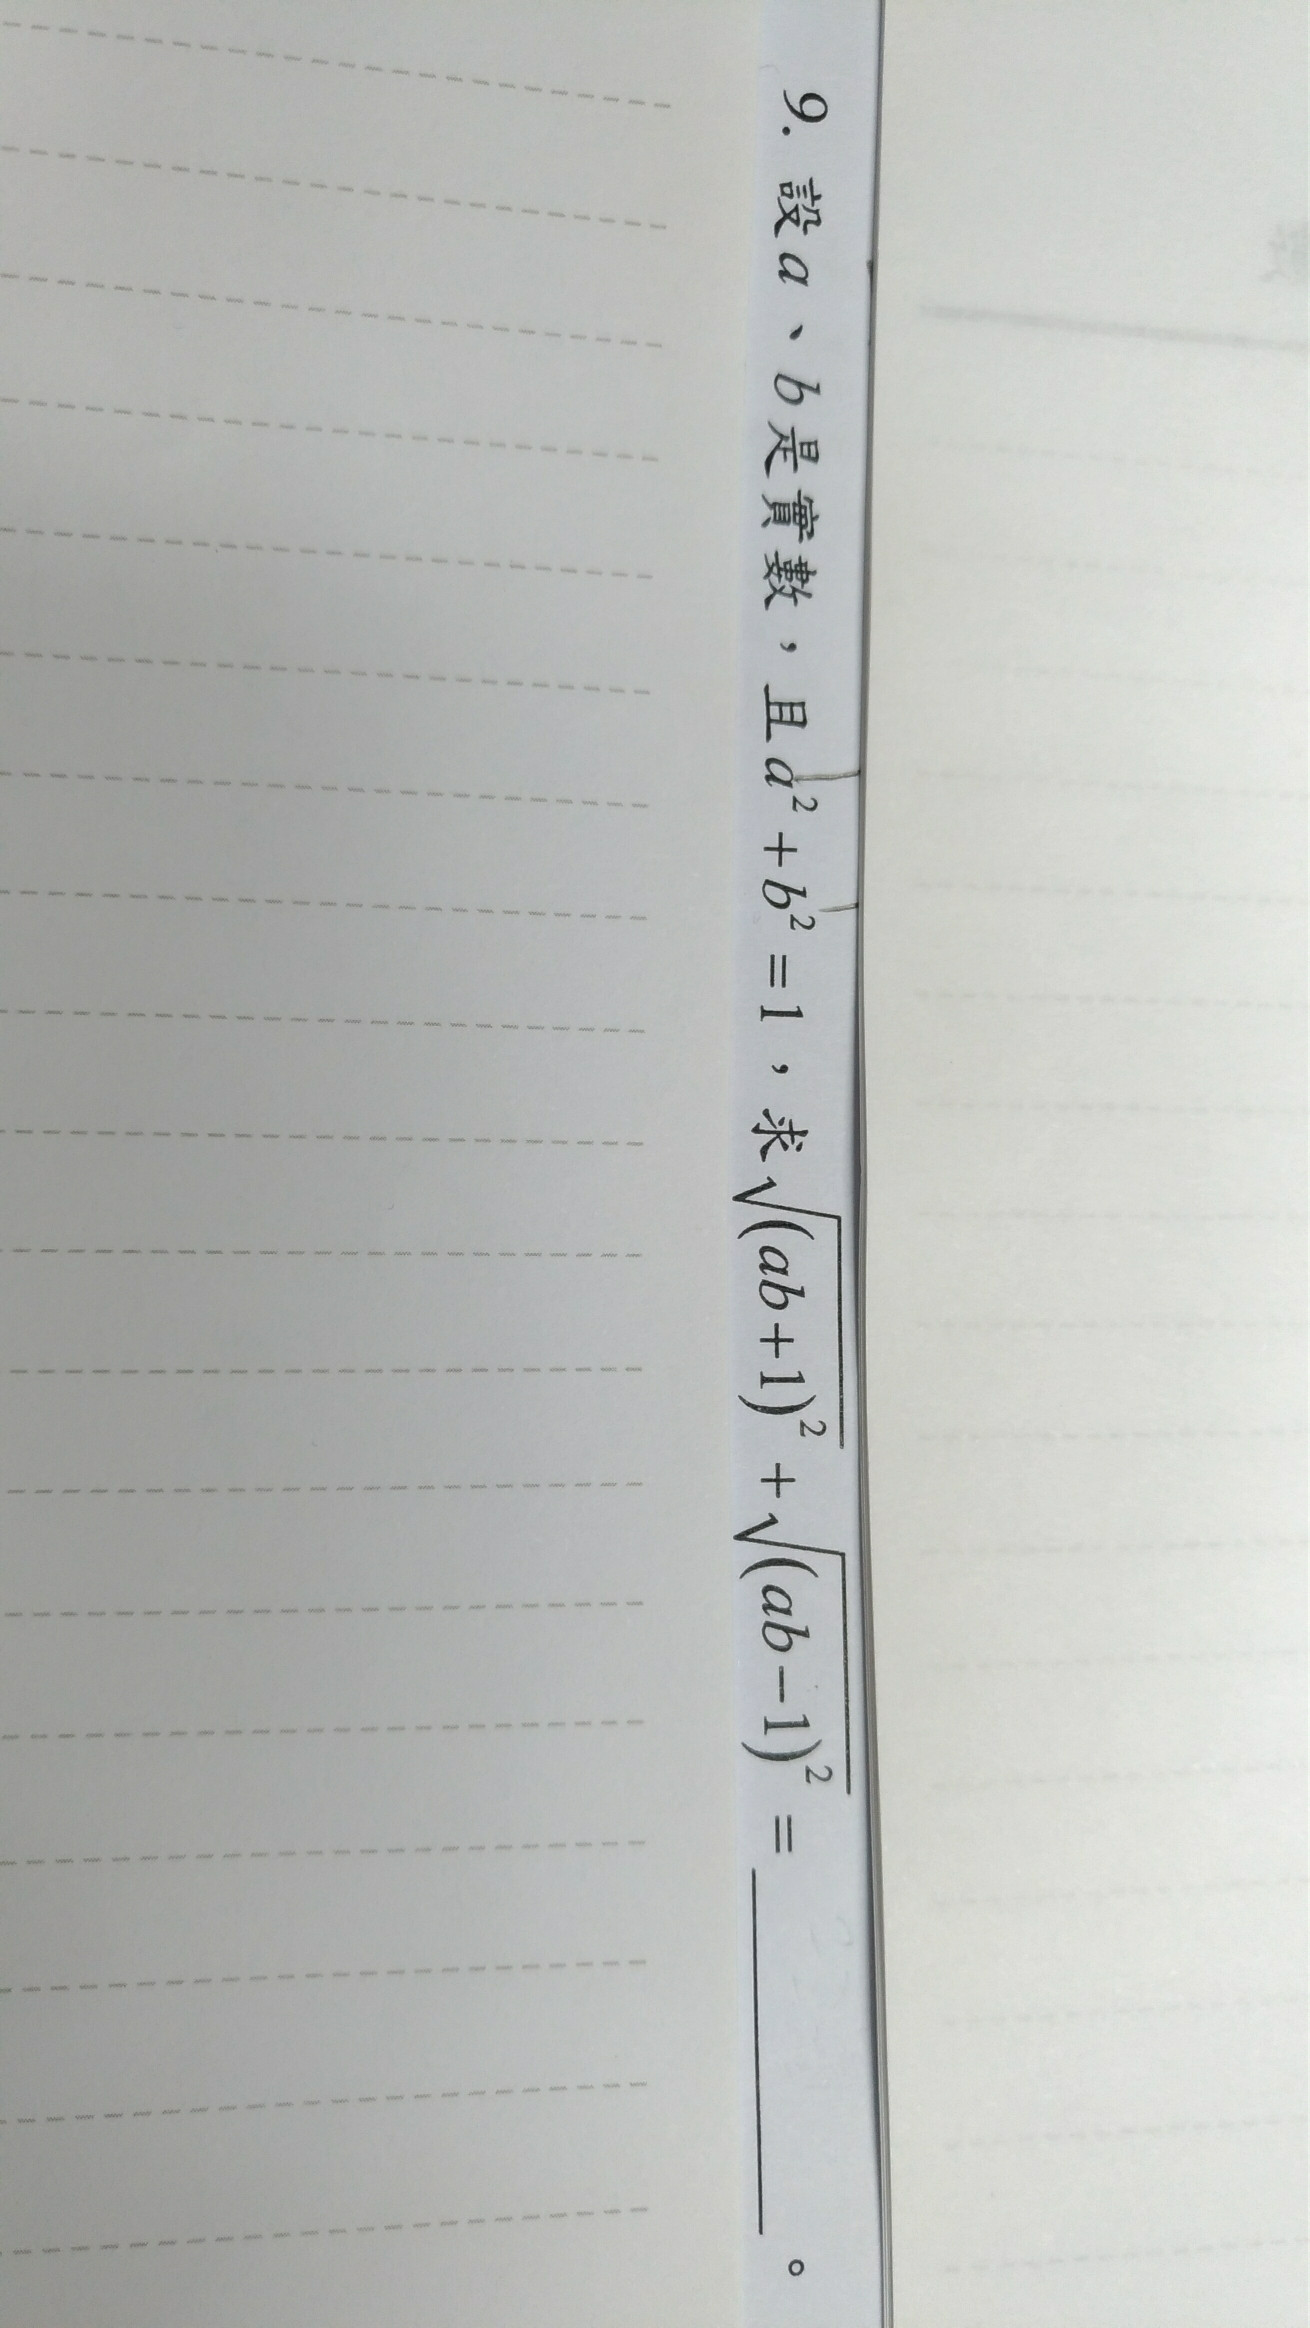 9. 設a、b是實數，且a²+b²=1，求√(ab+1)²+√(ab−1)²=________。